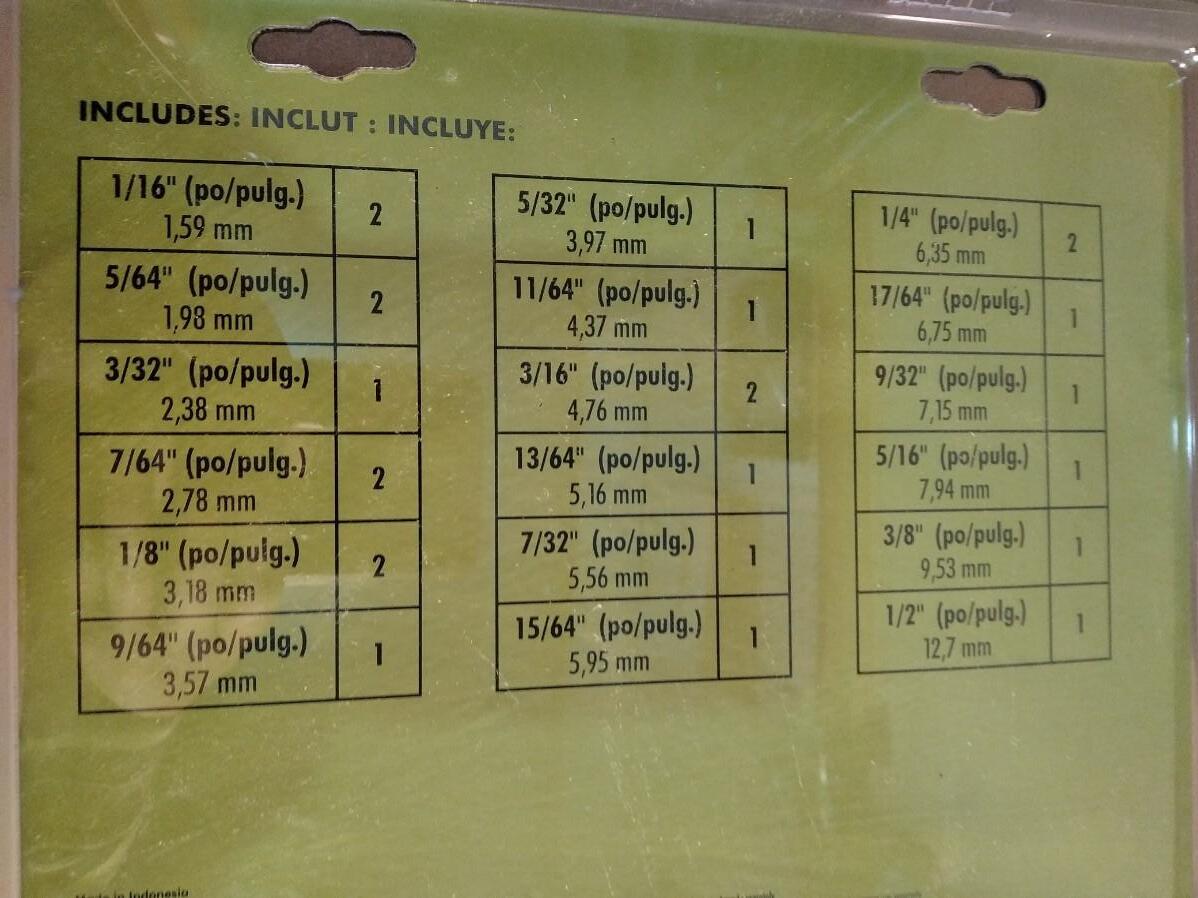 INCLUDES: INCLUT : INCLUYE:
1/16" (po/pulg.) 2
1,59 mm
5/64" (po/pulg.) 2
1,98 mm
3/32" (po/pulg.) 1
2,38 mm
7/64" (po/pulg.) 2
2,78 mm
1/8" (po/pulg.) 2
3,18 mm
9/64" (po/pulg.) 1
3,57 mm
5/32" (po/pulg.) 1
3,97 mm
11/64" (po/pulg.) 1
4,37 mm
3/16" (po/pulg.) 2
4,76 mm
13/64" (po/pulg.) 1
5,16 mm
7/32" (po/pulg.) 1
5,56 mm
15/64" (po/pulg.) 1
5,95 mm
1/4" (po/pulg.) 2
6,35 mm
17/64" (po/pulg.) 1
6,75 mm
9/32" (po/pulg.) 1
7,15 mm
5/16" (po/pulg.) 1
7,94 mm
3/8" (po/pulg.) 1
9,53 mm
1/2" (po/pulg.) 1
12,7 mm
Made in Indonesia